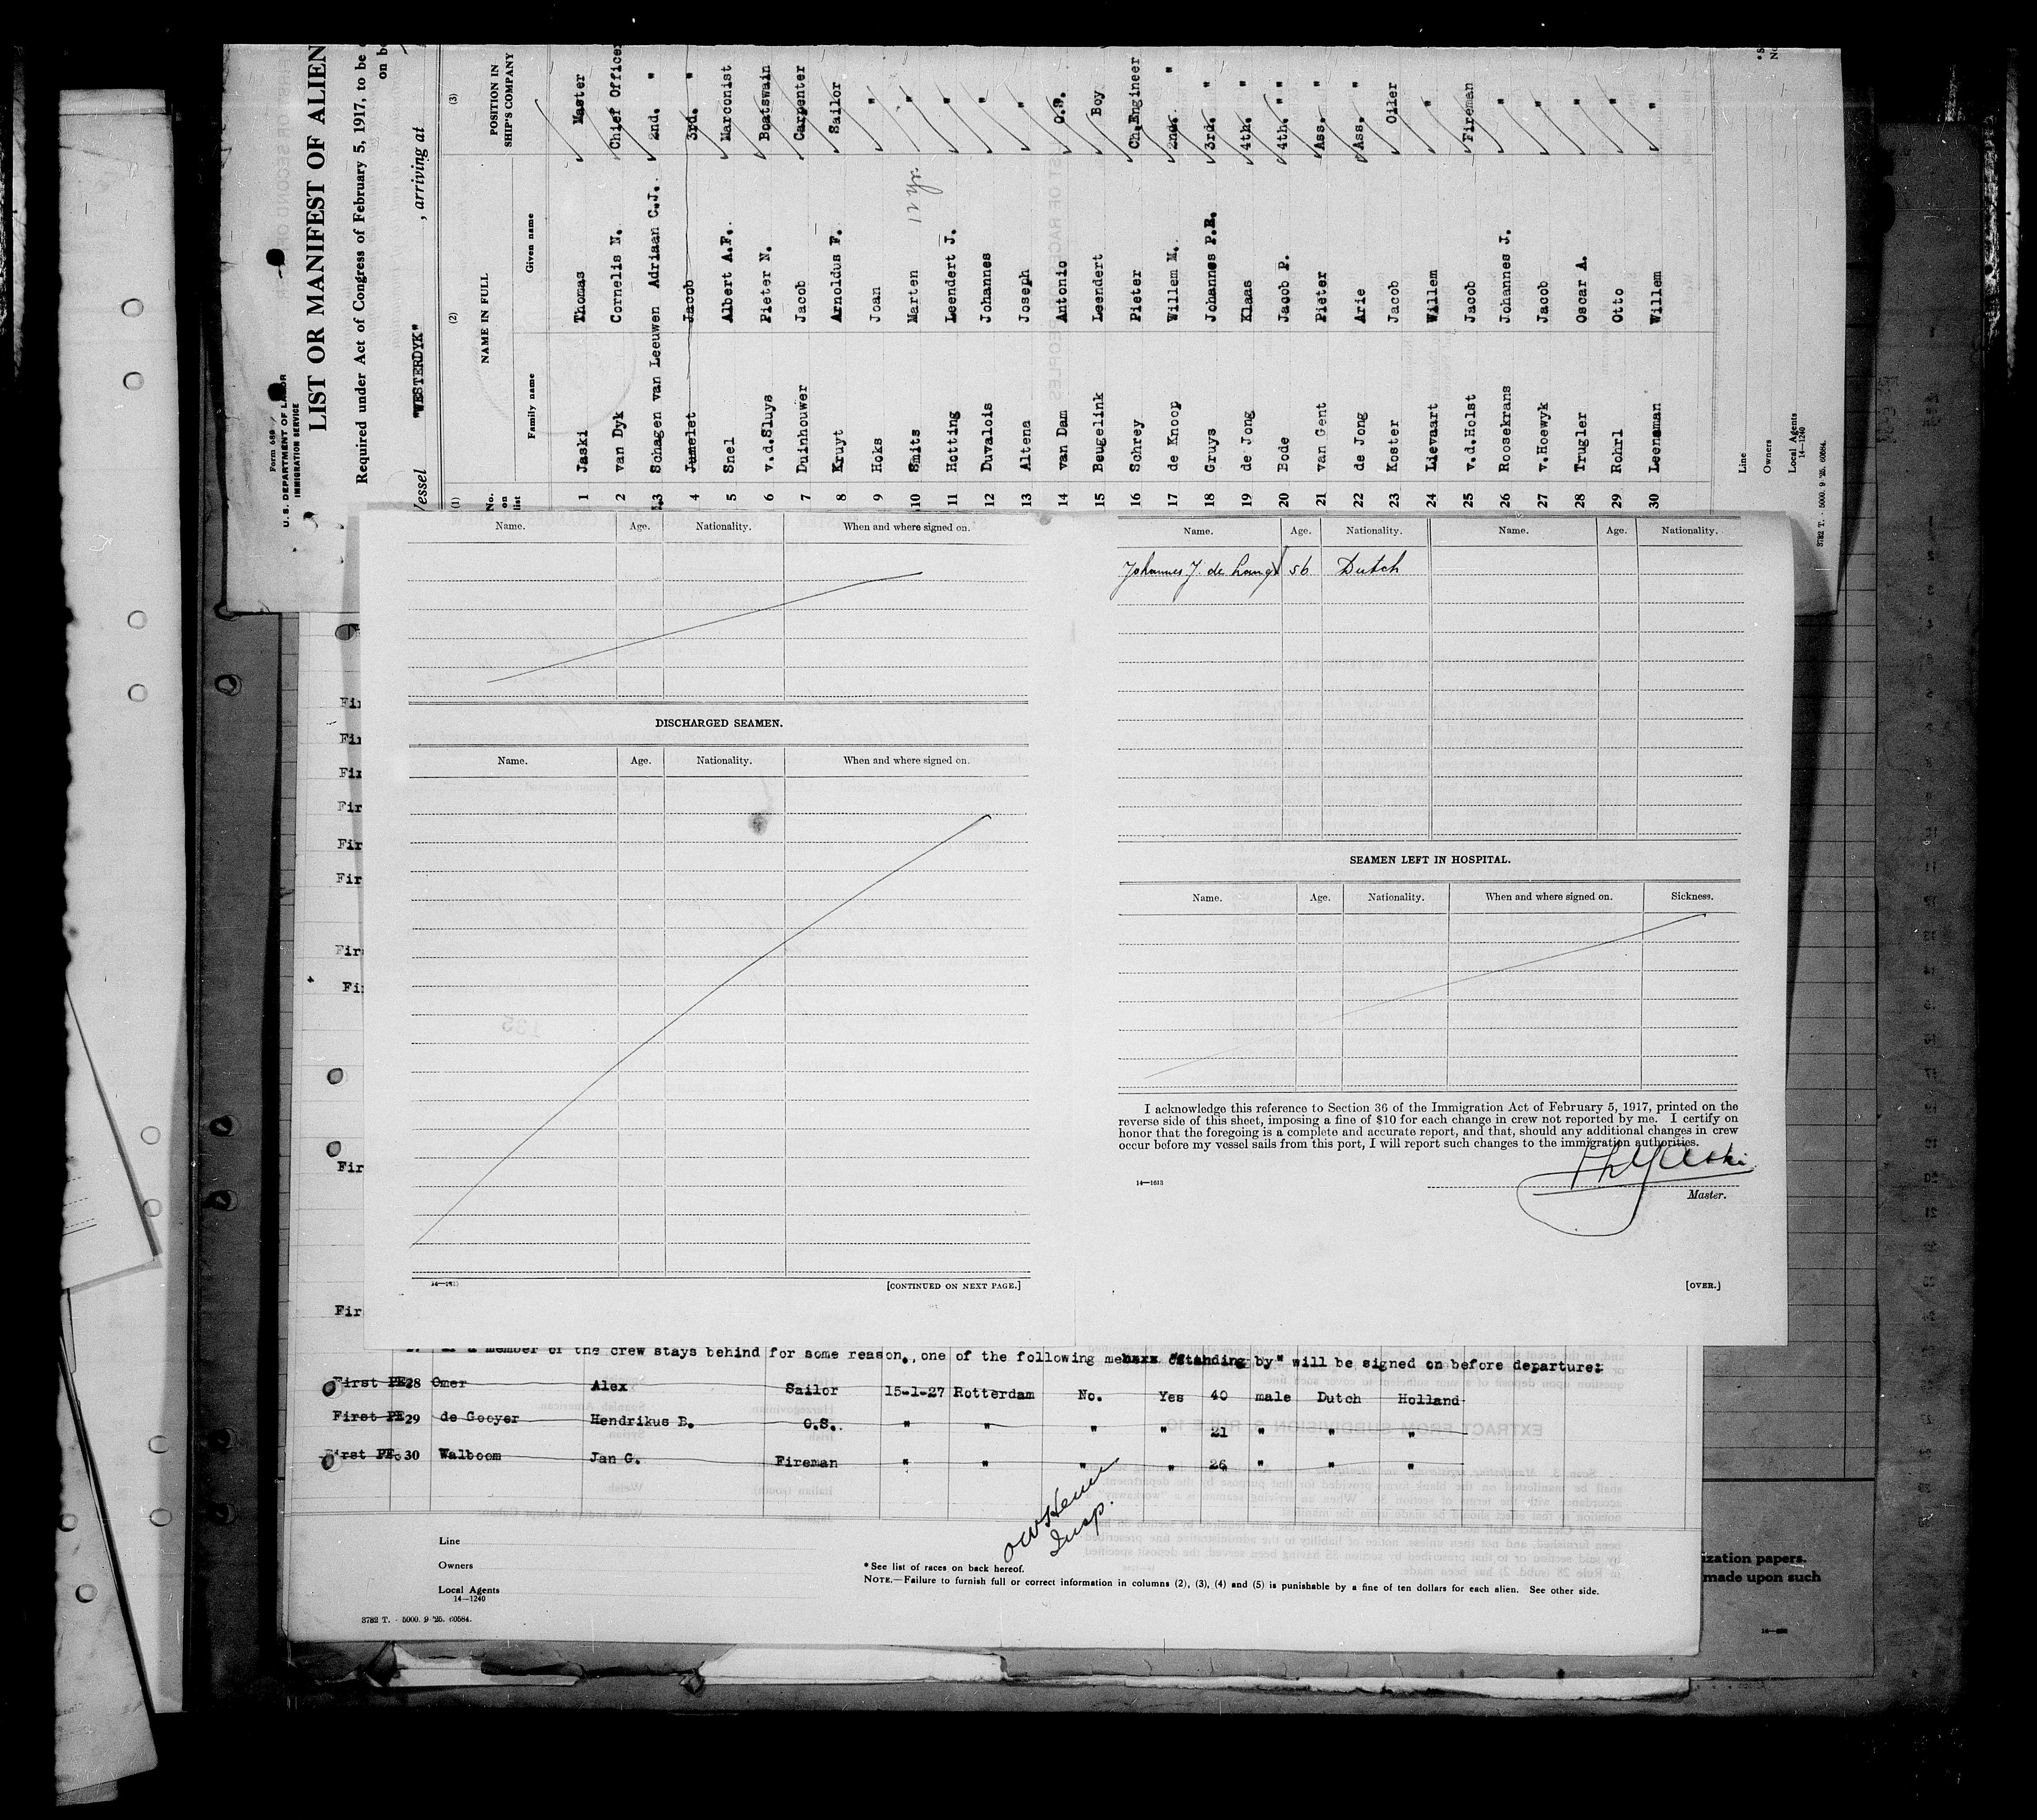 Form 689
U. S. DEPARTMENT OF LABOR
IMMIGRATION SERVICE
LIST OR MANIFEST OF ALIEN
Required under Act of Congress of February 5, 1917, to be
on bo
Vessel "WESTERDYK" , arriving at
(1) (2) (3)
No. on list NAME IN FULL POSITION IN SHIP'S COMPANY
Family name Given name
1 Jaski Thomas Master
2 van Dyk Cornelis N. Chief Officer
3 Schagen van Leeuwen Adriaan C.J. 2nd. "
4 Jumelet Jacob 3rd. "
5 Snel Albert A.F. Marconist
6 v.d.Sluys Pieter N. Boatswain
7 Duinhouwer Jacob Carpenter
8 Kruyt Arnoldus F. Sailor
9 Hoks Joan "
10 Smits Marten 12 yr. "
11 Hotting Leendert J. "
12 Duvalois Johannes "
13 Altena Joseph "
14 van Dam Antonio O.S.
15 Beugelink Leendert Boy
16 Schrey Pieter Ch.Engineer
17 de Knoop Willem M. 2nd. "
18 Gruys Johannes P.R. 3rd. "
19 de Jong Klaas 4th. "
20 Bode Jacob P. 4th. " "
21 van Gent Pieter Ass. "
22 de Jong Arie Ass. "
23 Koster Jacob Oiler
24 Lievaart Willem "
25 v.d.Holst Jacob Fireman
26 Roosekrans Johannes J. "
27 v.Hoewyk Jacob "
28 Trugler Oscar A. "
29 Rohrl Otto "
30 Leensman Willem "
Line
Owners
Local Agents
14—1240
3782 T. - 5000. 9 '25. 60584.
Name. Age. Nationality. When and where signed on.
DISCHARGED SEAMEN.
Name. Age. Nationality. When and where signed on.
[CONTINUED ON NEXT PAGE.]
Name. Age. Nationality. Name. Age. Nationality.
Johannes J. de Lange 56 Dutch
SEAMEN LEFT IN HOSPITAL.
Name. Age. Nationality. When and where signed on. Sickness.
I acknowledge this reference to Section 36 of the Immigration Act of February 5, 1917, printed on the
reverse side of this sheet, imposing a fine of $10 for each change in crew not reported by me. I certify on
honor that the foregoing is a complete and accurate report, and that, should any additional changes in crew
occur before my vessel sails from this port, I will report such changes to the immigration authorities.
Th Jaski
14—1613
Master.
[OVER.]
a member of the crew stays behind for some reason, one of the following "standing by" will be signed on before departure:
First PE 28 Omer Alex Sailor 15-1-27 Rotterdam No. Yes 40 male Dutch Holland
First PE 29 de Gooyer Hendrikus B. O.S. " " " " 21 " " "
First PE 30 Walboom Jan G. Fireman " " " " 26 " " "
Insp.
Line
Owners
Local Agents
14—1240
* See list of races on back hereof.
NOTE.—Failure to furnish full or correct information in columns (2), (3), (4) and (5) is punishable by a fine of ten dollars for each alien. See other side.
3782 T. - 5000. 9 '25. 60584.
ization papers.
made upon such